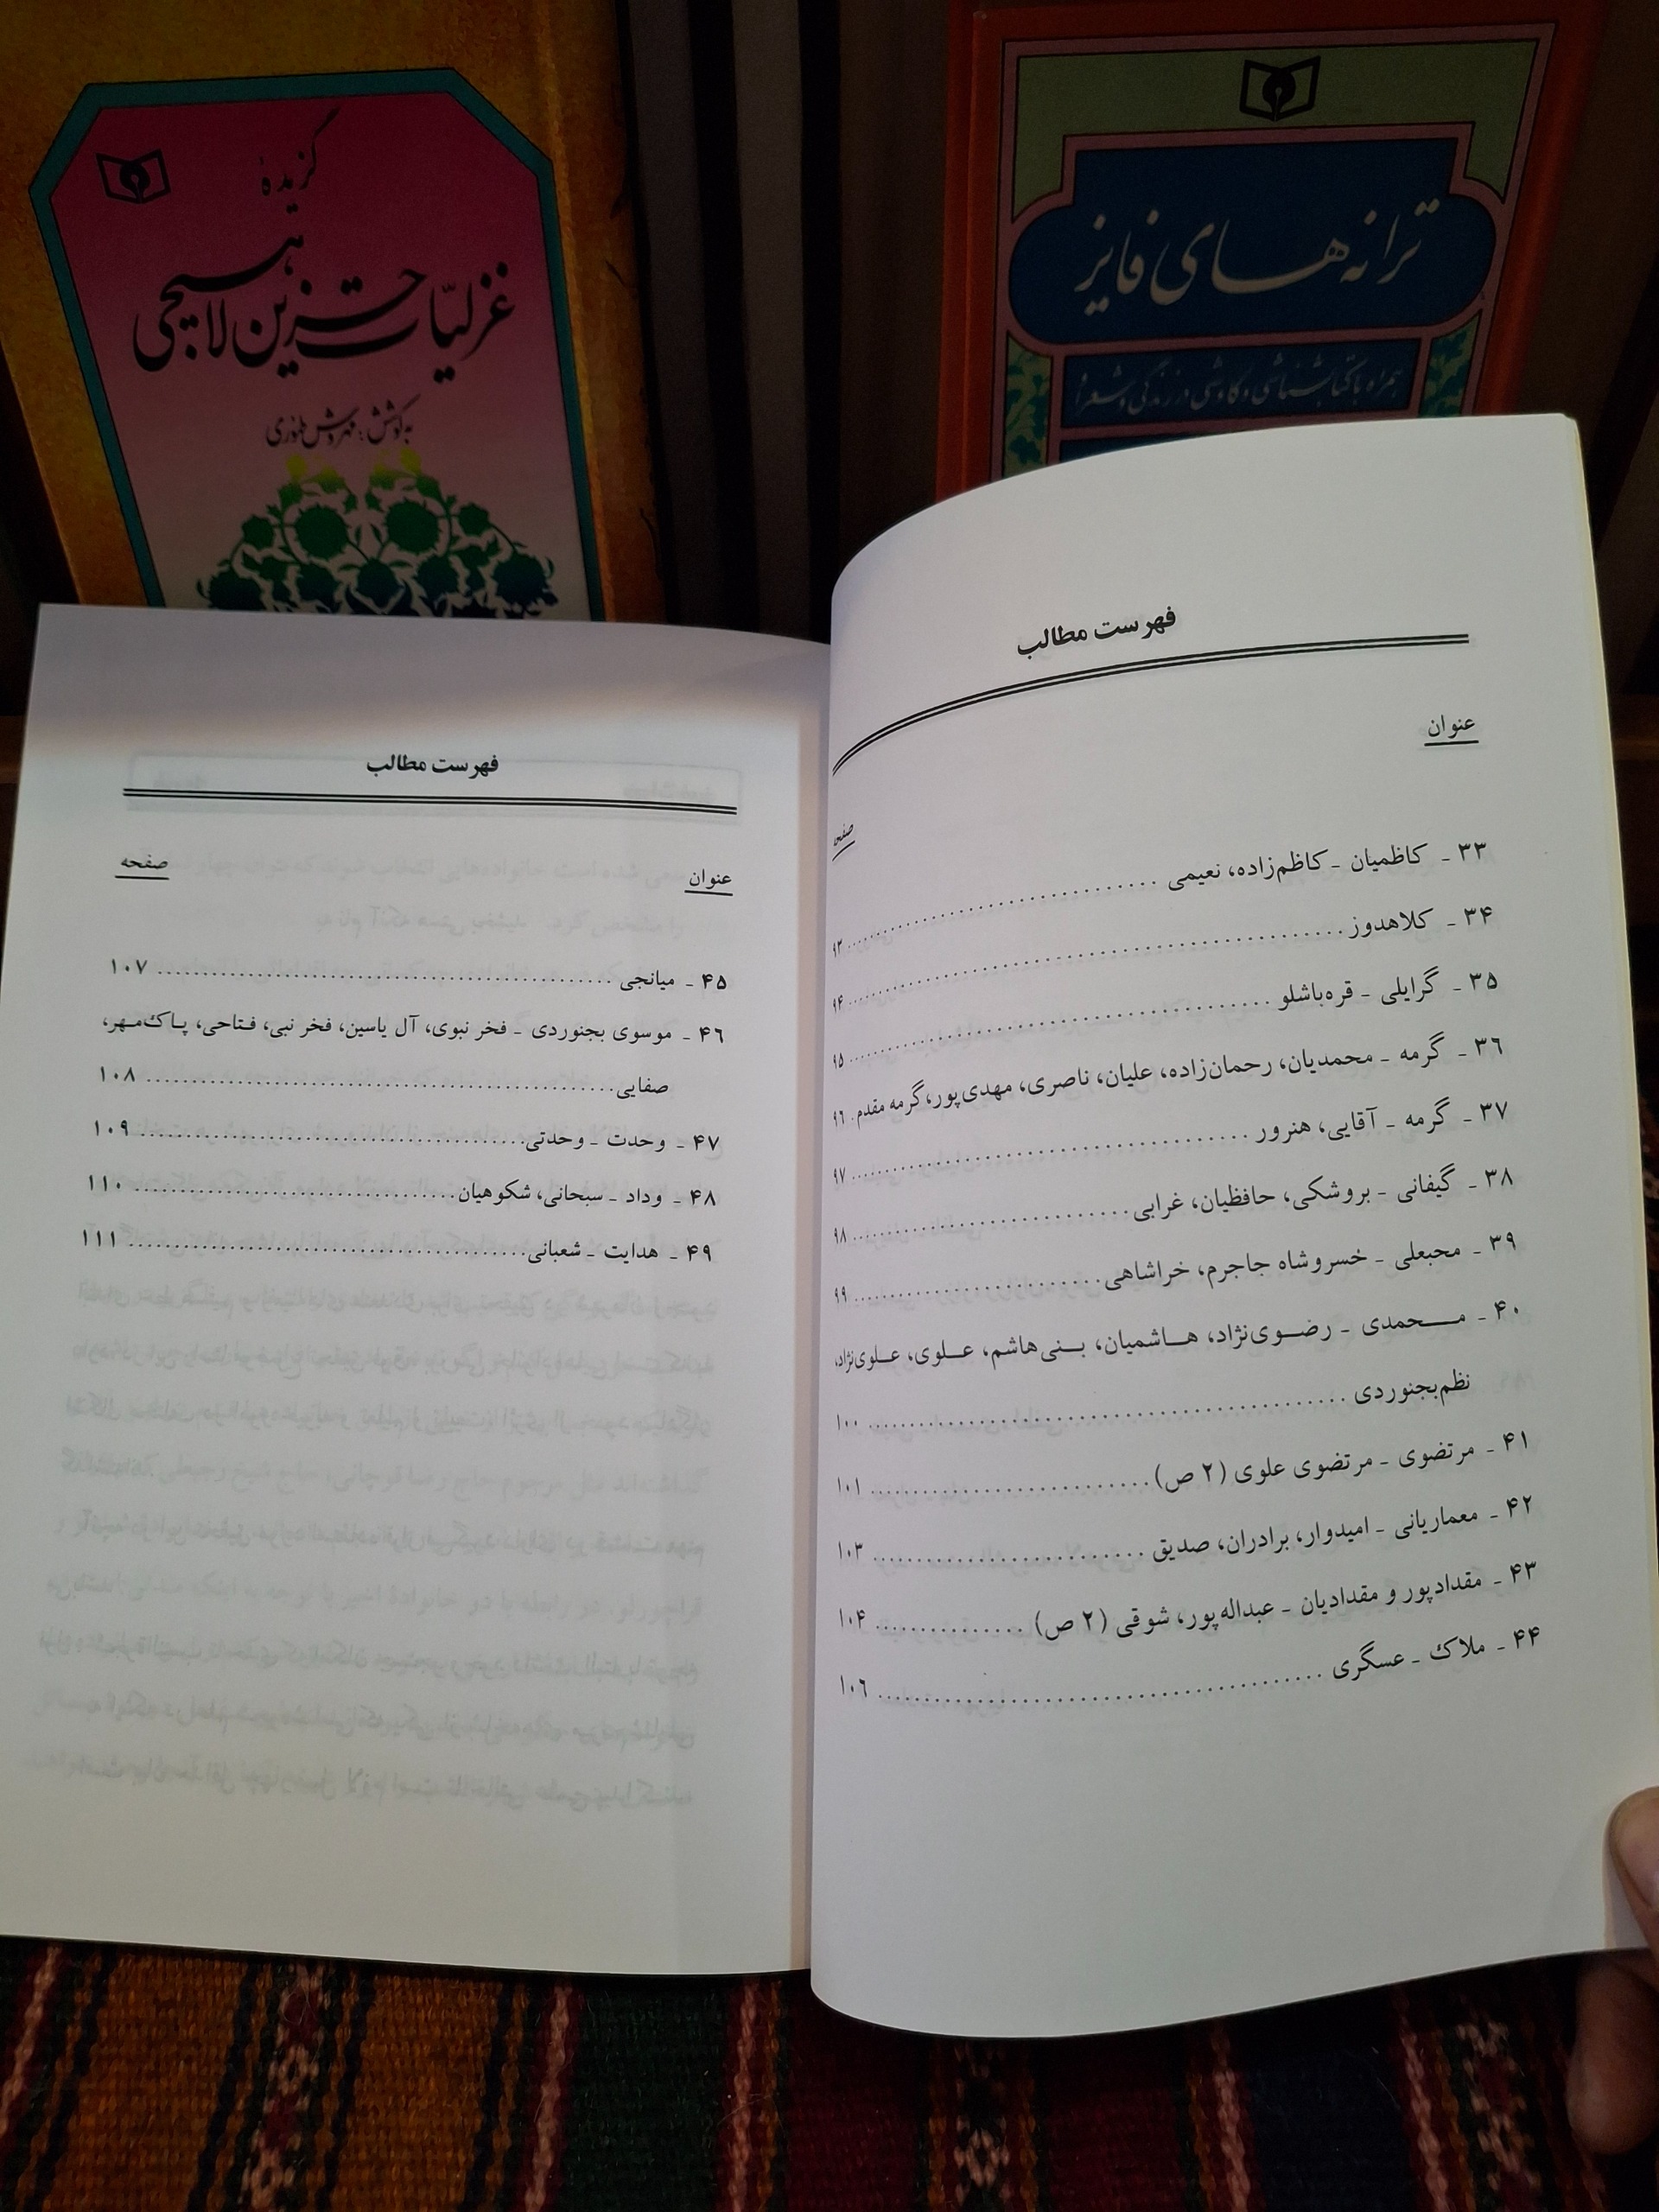 گزیدهٔ
غزلیّات حزین لاهیجی
به کوشش: مهروش طهوری
ترانه‌های فایز
همراه با کتابشناسی و کاوشی در زندگی و شعر او
فهرست مطالب
عنوان
صفحه
۳۳ - کاظمیان - کاظم‌زاده، نعیمی ........ ۹۳
۳۴ - کلاهدوز ........ ۹۴
۳۵ - گرایلی - قره‌باشلو ........ ۹۵
۳۶ - گرمه - محمدیان، رحمان‌زاده، علیان، ناصری، مهدی‌پور، گرمه مقدم . ۹۶
۳۷ - گرمه - آقایی، هنرور ........ ۹۷
۳۸ - گیفانی - بروشکی، حافظیان، غرابی ........ ۹۸
۳۹ - محبعلی - خسروشاه جاجرم، خراشاهی ........ ۹۹
۴۰ - محمدی - رضوی‌نژاد، هاشمیان، بنی‌هاشم، علوی، علوی‌نژاد،
نظم‌بجنوردی ........ ۱۰۰
۴۱ - مرتضوی - مرتضوی علوی (۲ ص) ........ ۱۰۱
۴۲ - معماریانی - امیدوار، برادران، صدیق ........ ۱۰۳
۴۳ - مقدادپور و مقدادیان - عبداله‌پور، شوقی (۲ ص) ........ ۱۰۴
۴۴ - ملاک - عسگری ........ ۱۰۶
فهرست مطالب
عنوان
صفحه
۴۵ - میانجی ........ ۱۰۷
۴۶ - موسوی بجنوردی - فخر نبوی، آل یاسین، فخر نبی، فتاحی، پاک‌مهر،
صفایی ........ ۱۰۸
۴۷ - وحدت - وحدتی ........ ۱۰۹
۴۸ - وداد - سبحانی، شکوهیان ........ ۱۱۰
۴۹ - هدایت - شعبانی ........ ۱۱۱